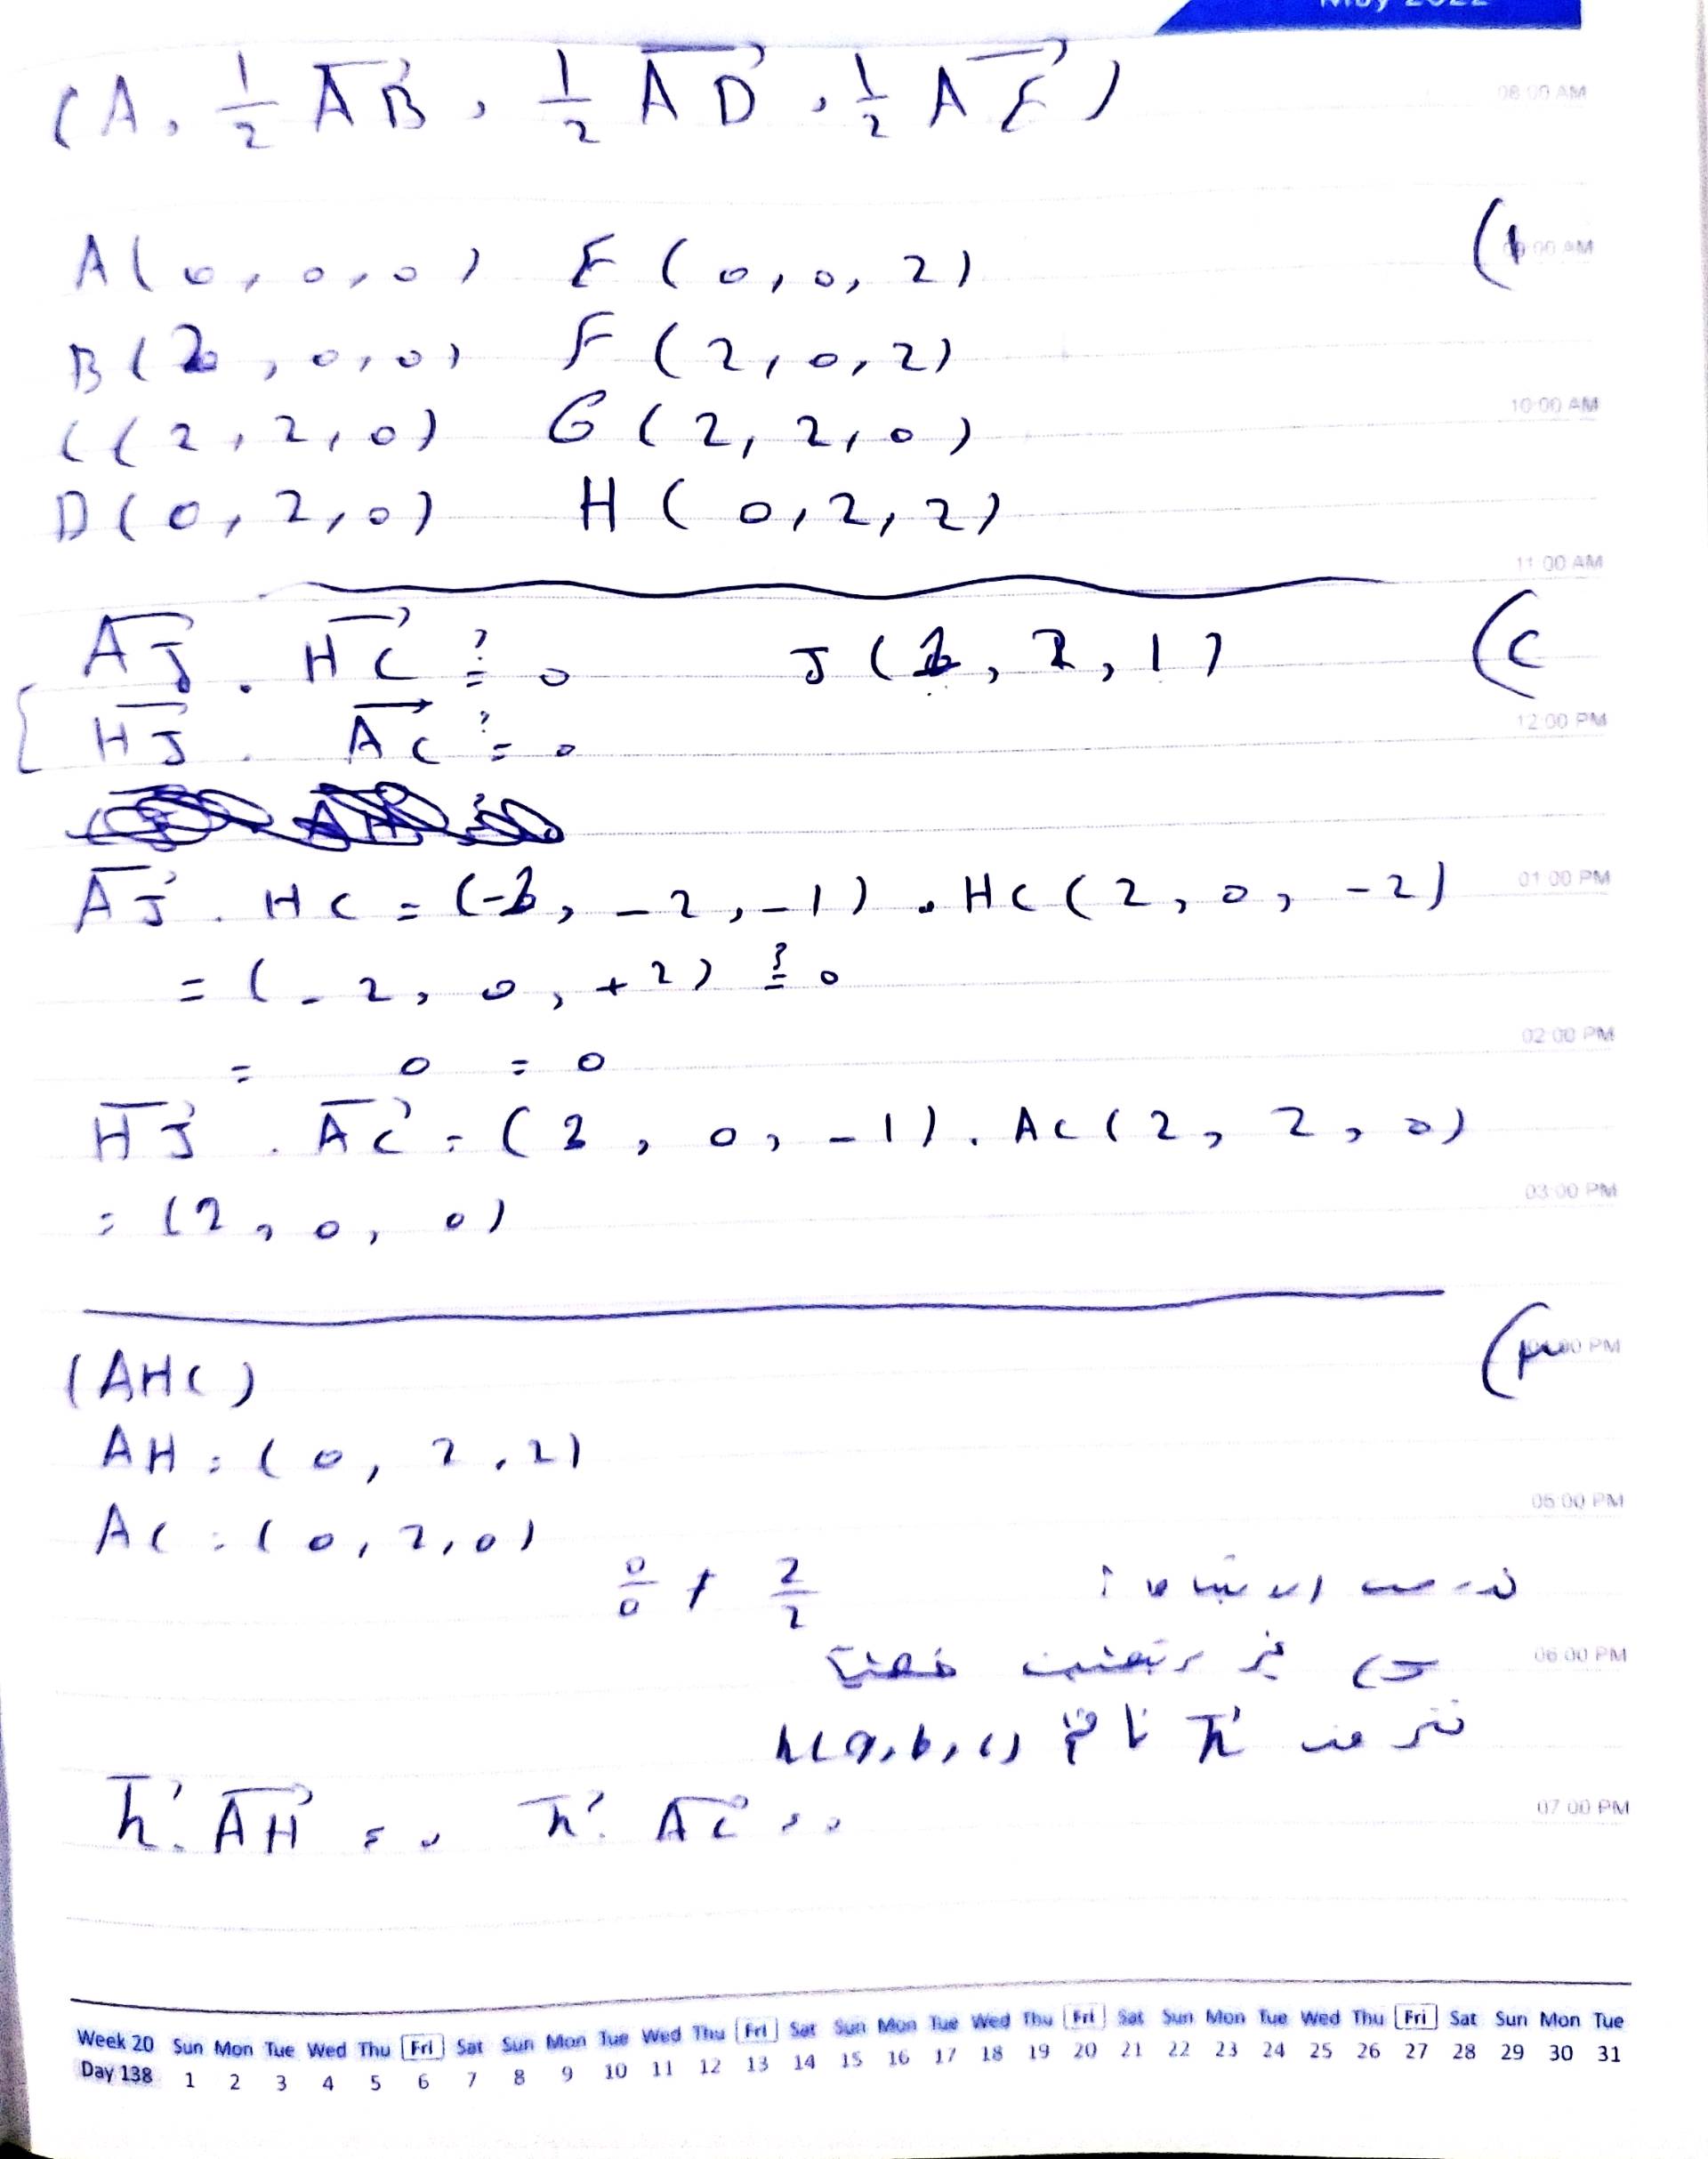 May 2022
(A, 1/2 AB, 1/2 AD, 1/2 AE)
08:00 AM
(1
09:00 AM
A(0, 0, 0) E(0, 0, 2)
B(2, 0, 0) F(2, 0, 2)
C(2, 2, 0) G(2, 2, 0)
10:00 AM
D(0, 2, 0) H(0, 2, 2)
11:00 AM
(٢
AJ . HC ?= 0 J(1, 2, 1)
HJ . AC ?= 0
12:00 PM
AJ . HC = (-1, -2, -1) . HC(2, 0, -2)
01:00 PM
= (-2, 0, +2) ?= 0
= 0 = 0
02:00 PM
HJ . AC = (1, 0, -1) . AC(2, 2, 0)
= (2, 0, 0)
03:00 PM
(٣
04:00 PM
(AHC)
AH = (0, 2, 2)
AC = (0, 2, 0)
05:00 PM
0/0 ≠ 2/2
06:00 PM
غير مرتبطين خطياً
نفرض n ناظم n(a, b, c)
n . AH = 0 n . AC = 0
07:00 PM
Week 20 Sun Mon Tue Wed Thu Fri Sat Sun Mon Tue Wed Thu Fri Sat Sun Mon Tue Wed Thu Fri Sat Sun Mon Tue Wed Thu Fri Sat Sun Mon Tue
Day 138 1 2 3 4 5 6 7 8 9 10 11 12 13 14 15 16 17 18 19 20 21 22 23 24 25 26 27 28 29 30 31